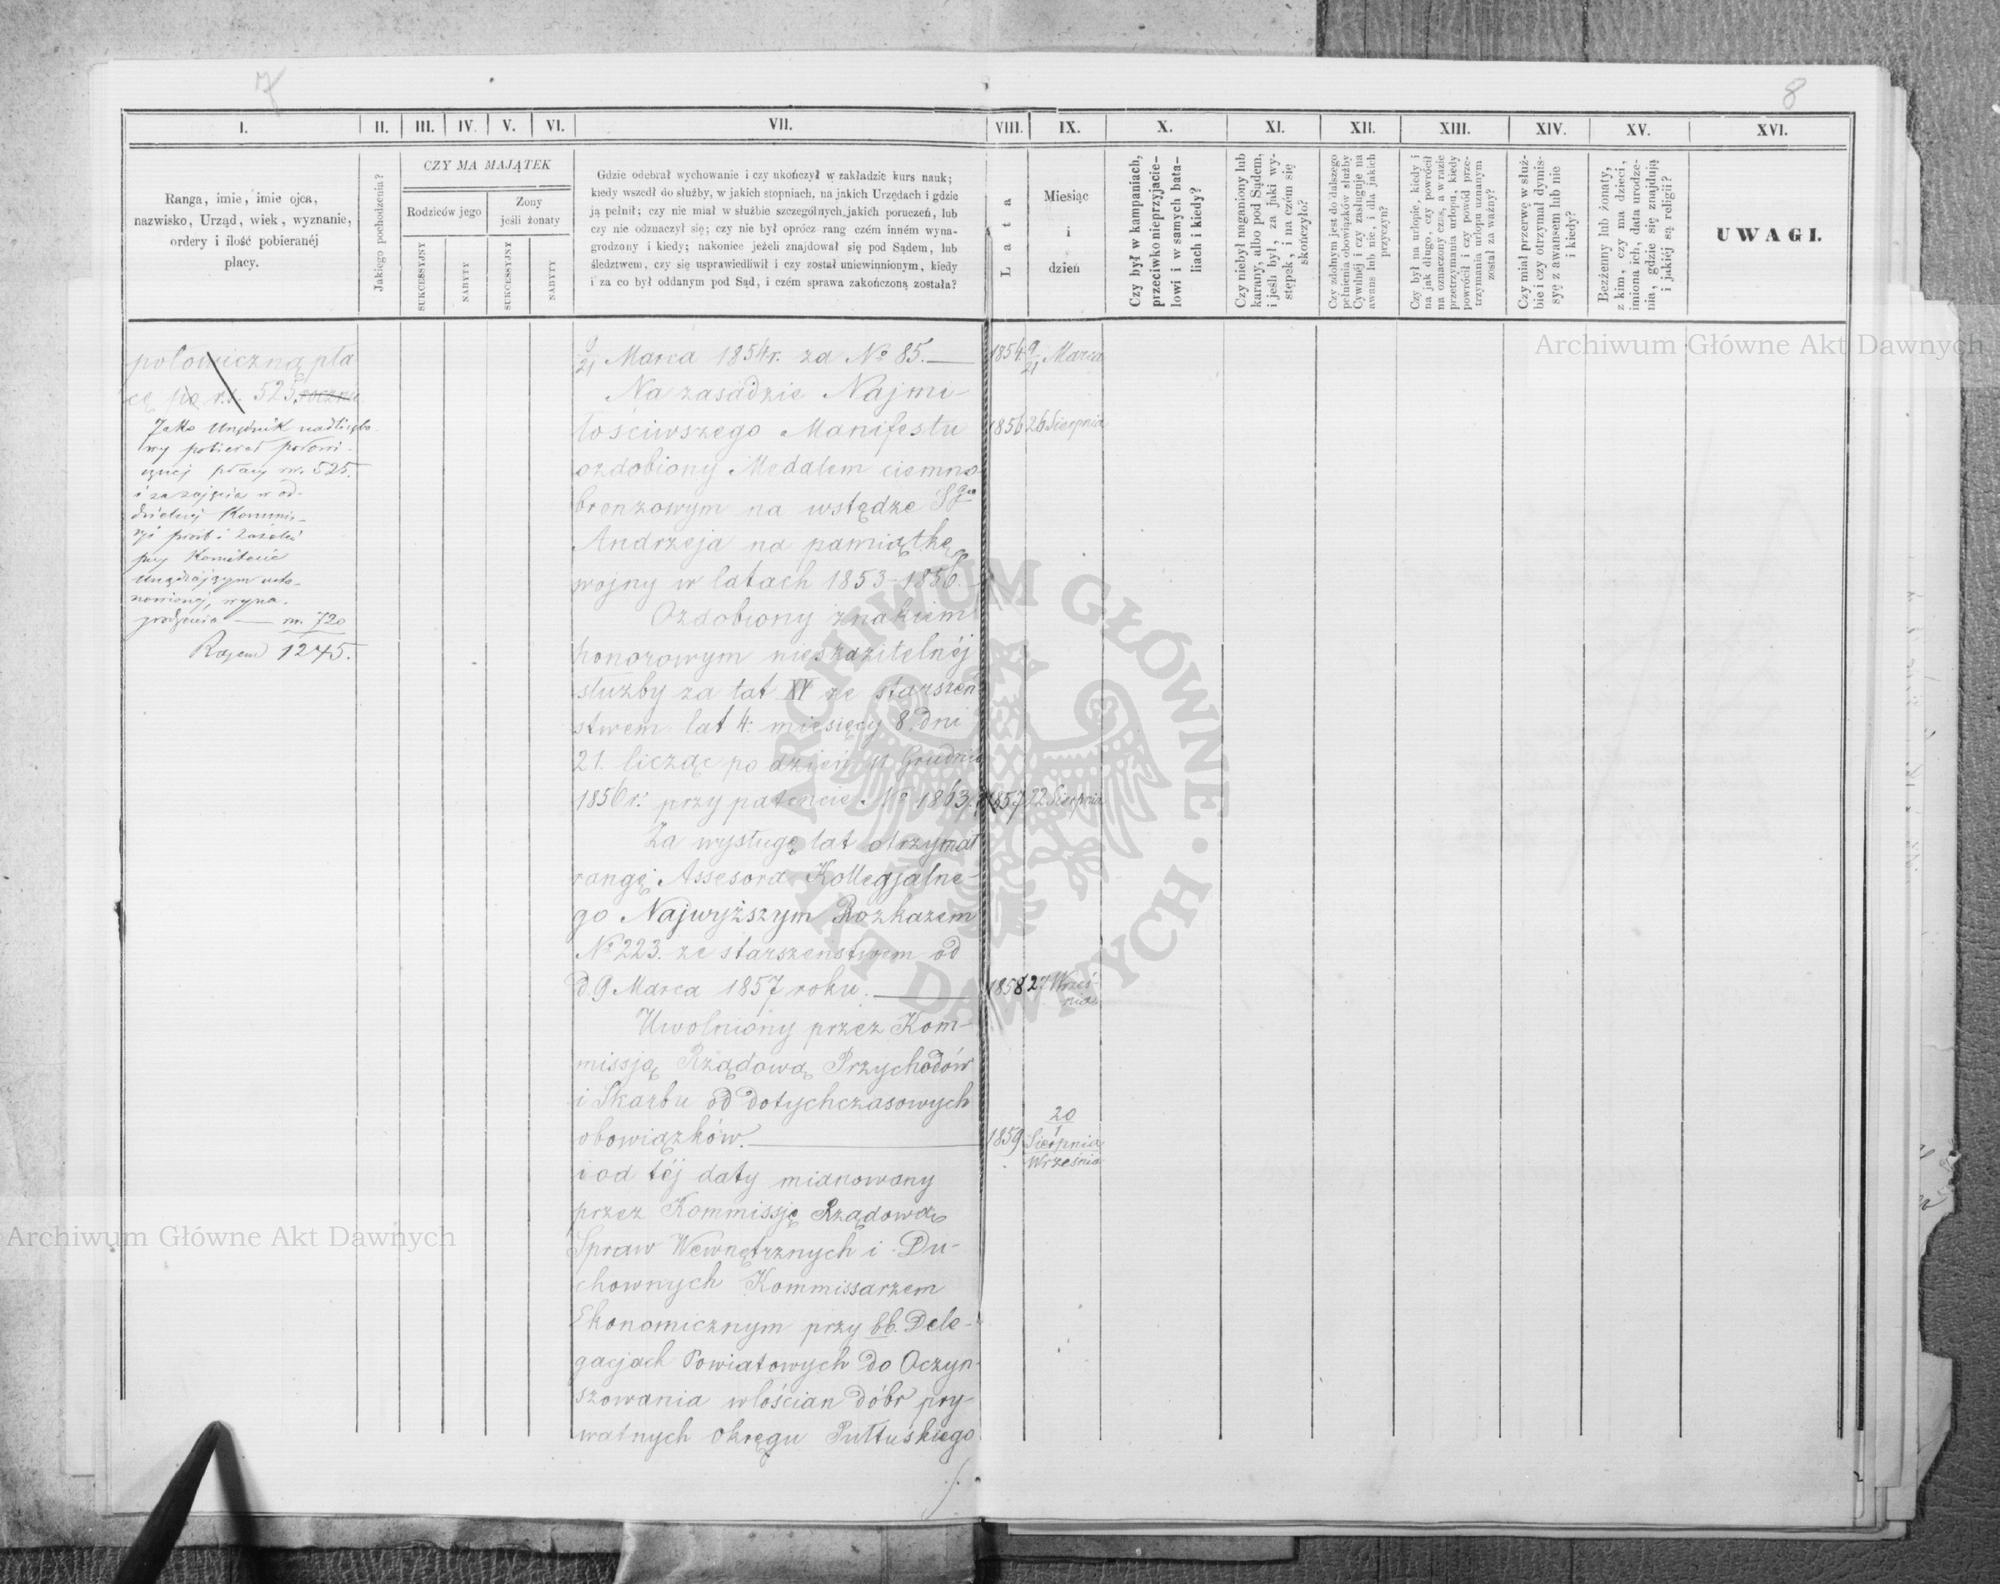 7
8
I.
II.
III.
IV.
V.
VI.
VII.
VIII.
IX.
X.
XI.
XII.
XIII.
XIV.
XV.
XVI.
Ranga, imie, imie ojca,
nazwisko, Urząd, wiek, wyznanie,
ordery i ilość pobieranéj
płacy.
Jakiego pochodzenia?
CZY MA MAJĄTEK
Rodziców jego
Żony
jeśli żonaty
SUKCESSYJSY
NABYTY
SUKCESSYJSY
NABYTY
Gdzie odebrał wychowanie i czy ukończył w zakładzie kurs nauk;
kiedy wszedł do służby, w jakich stopniach, na jakich Urzędach i gdzie
ją pełnił; czy nie miał w służbie szczególnych jakich poruczeń, lub
czy nie odznaczył się; czy nie był oprócz rang czém inném wyna-
grodzony i kiedy; nakoniec jeżeli znajdował się pod Sądem, lub
śledztwem, czy się usprawiedliwił i czy został uniewinnionym, kiedy
i za co był oddanym pod Sąd, i czém sprawa zakończoną została?
Lata
Miesiąc
i
dzień
Czy był w kampaniach,
przeciwko nieprzyjacie-
lowi i w samych bata-
liach i kiedy?
Czy niebył naganiony lub
karany, albo pod Sądem,
i jeśli był, za jaki wy-
stępek, i na czém się
skończyło?
Czy zdolnym jest do dalszego
pełnienia obowiązków służby
Cywilnéj i czy zasługuje na
awans lub nie, i dla jakich
przyczyn?
Czy był na urlopie, kiedy i
na jak długo, czy powrócił
na oznaczony czas, a w razie
przetrzymania urlopu, kiedy
powrócił i czy powód prze-
trzymania urlopu uznanym
został za ważny?
Czy miał przerwę w służ-
bie i czy otrzymał dymis-
syę z awansem lub nie
i kiedy?
Bezżenny lub żonaty,
z kim, czy ma dzieci,
imiona ich, data urodze-
nia, gdzie się znajdują
i jakiéj są religii?
UWAGI.
połowiczną pła
cę po r.s. 525 rocznie
Jako Urzędnik nadliczbo-
wy pobierał połowi-
cznej płacy rs. 525.
i za zajęcia w od-
dzielnej Kommis-
syi próśb i Zażaleń
przy Komitecie
Urządzającym usta-
nowionej, wyna-
grodzenia — rs. 720
Razem 1245.
9/21 Marca 1854r. za No 85.—
Na zasadzie Najmi-
łościwszego Manifestu
ozdobiony Medalem ciemno
bronzowym na wstędze Sgo
Andrzeja na pamiątkę
wojny w latach 1853-1856.
Ozdobiony znakiem
honorowym nieskazitelnéj
służby za lat XV ze starszeń
stwem lat 4: miesięcy 8. dni
21. licząc po dzień 11 Grudnia
1856r. przy patencie No 1863.
Za wysługę lat otrzymał
rangę Assesora Kollegjalne-
go Najwyższym Rozkazem
No 223. ze starszeństwem od
d. 9 Marca 1857 roku. —
Uwolniony przez Kom-
missję Rządową Przychodów
i Skarbu od dotychczasowych
obowiązków. —
i od téj daty mianowany
przez Kommissję Rządową
Spraw Wewnętrznych i Du-
chownych Kommissarzem
Ekonomicznym przy bb. Dele-
gacjach Powiatowych do Oczyn-
szowania włościan dóbr pry-
watnych Okręgu Pułtuskiego
1854 9/21 Marca
1856 26 Sierpnia
1857 22 Sierpnia
1858 27 Wrześ-
nia
1859 20 Sierpnia
1 Września
Archiwum Główne Akt Dawnych
ARCHIWUM GŁÓWNE AKT DAWNYCH
Archiwum Główne Akt Dawnych